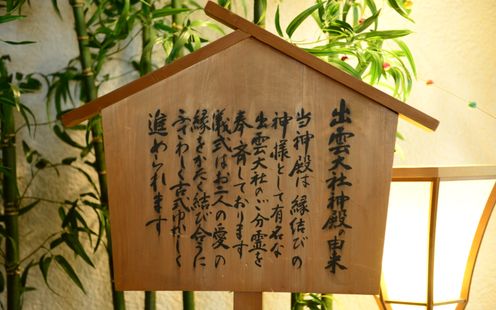 出雲大社神殿の由来
当神殿は縁結びの
神様として有名な
出雲大社のご分霊を
奉斎しております
儀式はお二人の愛の
縁をかたく結び合うに
ふさわしく古式ゆかしく
進められます